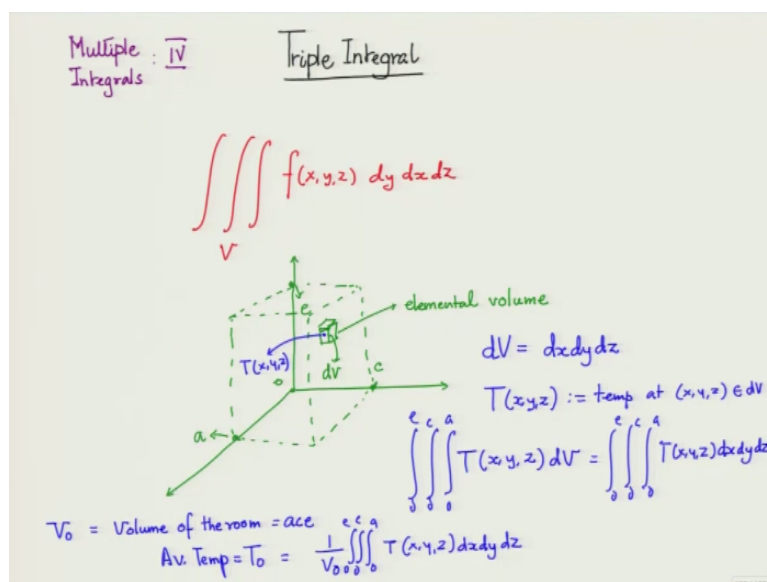 Multiple : IV
Integrals
Triple Integral
∭ f(x,y,z) dy dx dz
V
e
elemental volume
T(x,y,z)
dv
o
c
a
dV = dxdydz
T(x,y,z) := temp at (x,y,z) ∈ dV
∫₀ᵉ ∫₀ᶜ ∫₀ᵃ T(x,y,z) dV = ∫₀ᵉ ∫₀ᶜ ∫₀ᵃ T(x,y,z) dxdydz
V₀ = Volume of the room = ace
Av. Temp = T₀ = 1/V₀ ∫₀ᵉ ∫₀ᶜ ∫₀ᵃ T(x,y,z) dxdydz